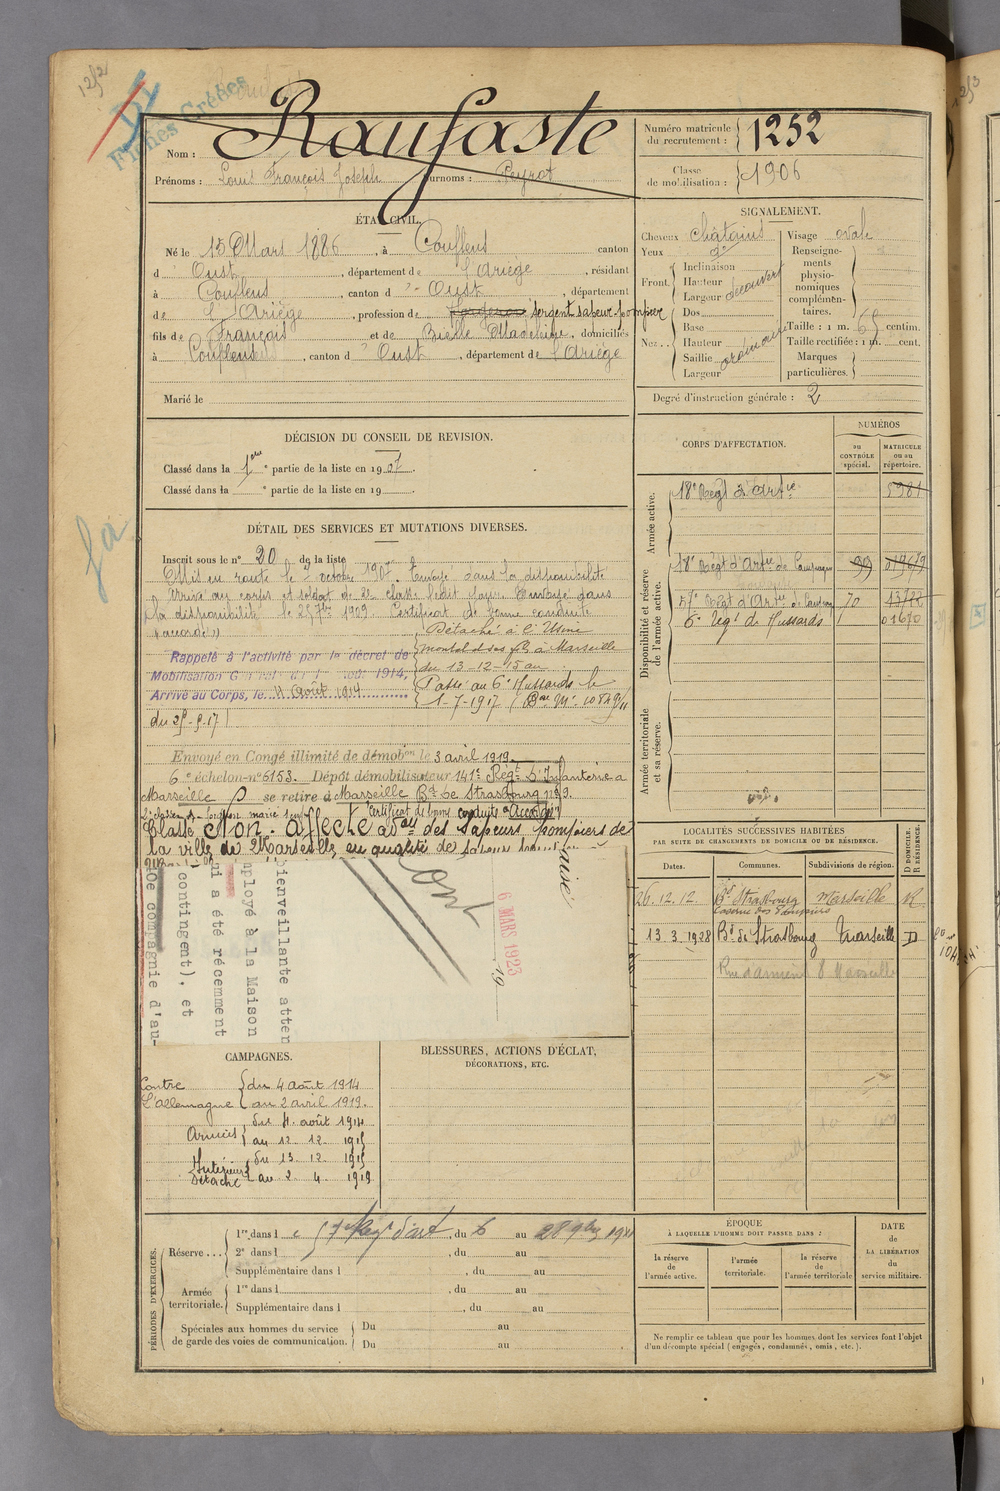 1252
Fiches Créées
Nom : Raufaste
Prénoms : Louis François Joseph Surnoms : Peyrot
Numéro matricule du recrutement : 1252
Classe de mobilisation : 1906
ÉTAT CIVIL.
Né le 15 Mars 1886, à Couflens canton
d' Oust, département de l'Ariège, résidant
à Couflens, canton d' Oust, département
de l'Ariège, profession de forgeron sergent sapeur-pompier
fils de François et de Bielle, domiciliés
à Couflens, canton d' Oust, département de l'Ariège
Marié le
SIGNALEMENT.
Cheveux châtains
Yeux do
Front. Inclinaison
Hauteur
Largeur découvert
Nez.. Dos
Base
Hauteur
Saillie
Largeur
ordinaire
Visage ovale
Renseignements physionomiques complémentaires.
Taille : 1 m. 65 centim.
Taille rectifiée : 1 m. cent.
Marques particulières.
Degré d'instruction générale : 2
DÉCISION DU CONSEIL DE REVISION.
Classé dans la 1ère partie de la liste en 1907.
Classé dans la e partie de la liste en 19
DÉTAIL DES SERVICES ET MUTATIONS DIVERSES.
Inscrit sous le n° 20 de la liste
Mis en route le 7 octobre 1907. Envoyé dans la disponibilité
Arrivé au corps et soldat de 2e classe ledit jour. Envoyé dans
la disponibilité le 25 7bre 1909. Certificat de bonne conduite
"accordé"
Rappelé à l'activité par le décret de
Mobilisation Générale du 1 août 1914,
Arrivé au Corps, le 11 Août 1914
Détaché à l'Usine
montal et ses fils à Marseille
du 13-12-15 au
Passé au 6e Hussards le
1-7-1917
du 25-9-17)
Envoyé en Congé illimité de démobon le 3 avril 1919.
6e échelon n° 6153. Dépôt démobilisateur 141e Régt d'Infanterie à
Marseille se retire à Marseille Bd de Strasbourg n° 9.
Certificat de bonne conduite "Accordé"
Classé Non-affecté aux des Sapeurs pompiers de
la ville de Marseille, en qualité de sapeur
bienveillante atten
mployé à la Maison
ui a été récemment
contingent), et
0e compagnie d'au-
6 MARS 1923
19
CORPS D'AFFECTATION.
NUMÉROS
au CONTRÔLE spécial.
MATRICULE ou au répertoire.
Armée active.
18e Régt d'Artie 5981
Disponibilité et réserve de l'armée active.
18e Régt d'Artie de Campagne 99 01967/9
57e Régt d'Artie de Campagne 70 13722
6e Régt de Hussards 01670
Armée territoriale et sa réserve.
LOCALITÉS SUCCESSIVES HABITÉES
PAR SUITE DE CHANGEMENTS DE DOMICILE OU DE RÉSIDENCE.
Dates. Communes. Subdivisions de région. D DOMICILE. R RÉSIDENCE.
26.12.12. Bd Strasbourg Marseille R
Caserne des Pompiers
13.3.1928 Bd de Strasbourg Marseille D
Rue d'amiens 8 Marseille
CAMPAGNES.
Contre l'Allemagne du 4 août 1914
au 2 avril 1919.
Armées du 4 août 1914
au 12 12 1915
Intérieur Détaché du 13 12 1915
au 2 4 1919
BLESSURES, ACTIONS D'ÉCLAT,
DÉCORATIONS, ETC.
PÉRIODES D'EXERCICES.
Réserve... 1re dans le 57e Regt d'art, du 6 au 28 9bre 1911
2e dans l , du au
Supplémentaire dans l , du au
Armée territoriale. 1re dans l , du au
Supplémentaire dans l , du au
Spéciales aux hommes du service de garde des voies de communication. Du au
Du au
ÉPOQUE
À LAQUELLE L'HOMME DOIT PASSER DANS :
la réserve de l'armée active.
l'armée territoriale.
la réserve de l'armée territoriale
DATE DE LA LIBÉRATION du service militaire.
Ne remplir ce tableau que pour les hommes dont les services font l'objet
d'un décompte spécial (engagés, condamnés, omis, etc.).